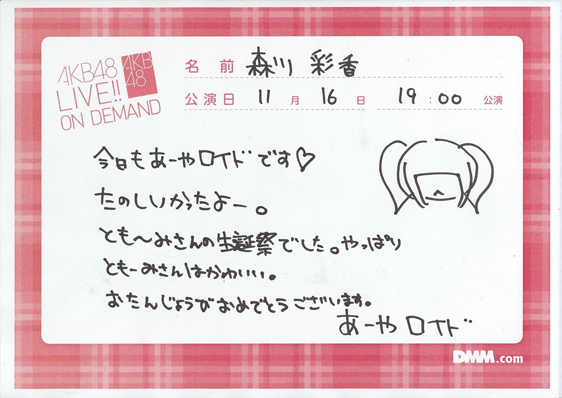 AKB48
LIVE!!
ON DEMAND
AKB
48
名前 森川 彩香
公演日 11月16日 19:00 公演
今日もあーやロイドです♡
たのしいかったよー。
とも〜みさんの生誕祭でした。やっぱり
ともーみさんはかわいい。
おたんじょうびおめでとうございます。
あーやロイド
DMM.com